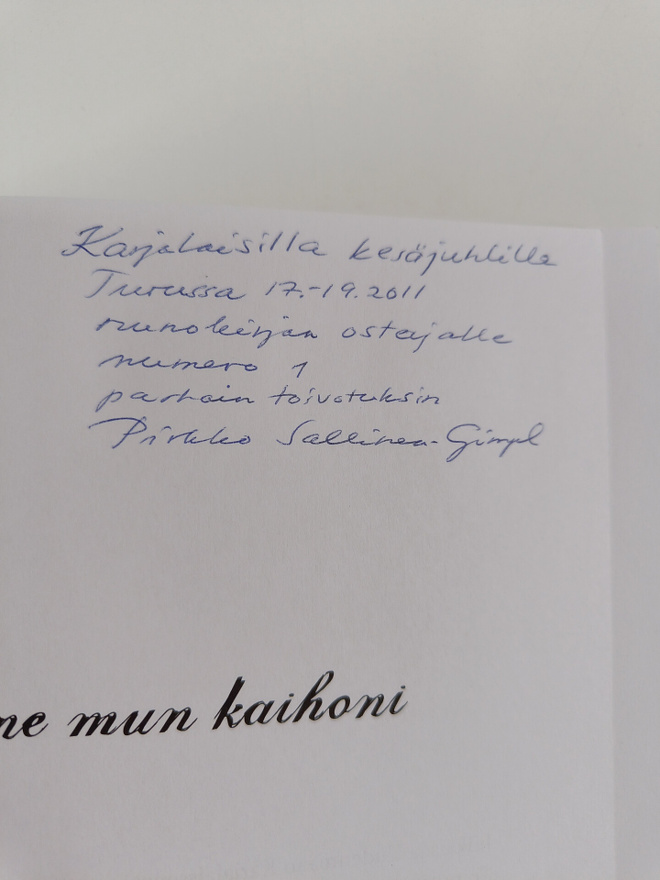 Karjalaisilla kesäjuhlilla
Turussa 17.-19.2011
runokirjan ostajalle
numero 1
parhain toivotuksin
Pirkko Sallinen-Gimpl
ne mun kaihoni